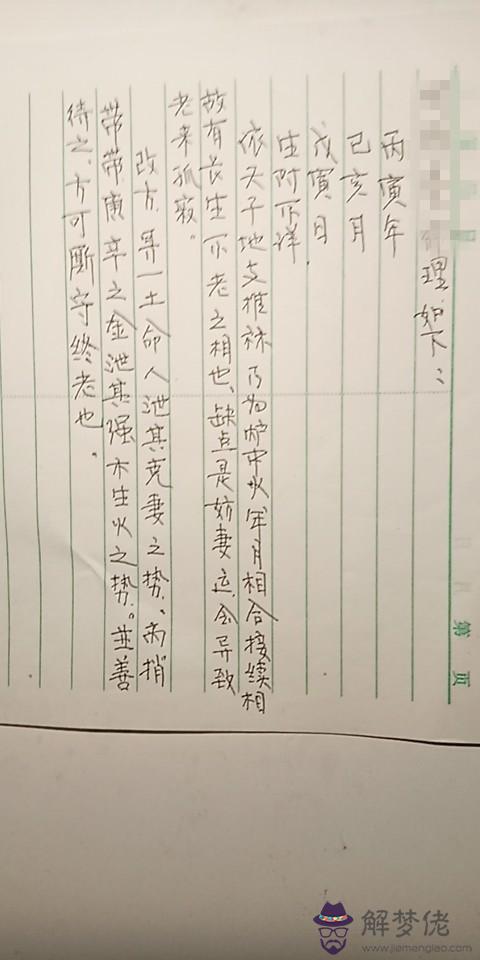 理如下：
丙寅年
己亥月
戊寅日
生时不详.
依天干地支推 乃为炉中火年月相合接续相
故有长生不老之相也、缺点是妨妻运.会导致
老来孤寂。
改方.寻一土命人泄其克妻之势、
带带庚辛之金泄其强木生火之势。並善
待之、方可断守终老也.
第 页
解梦佬
www.jiemenglao.com